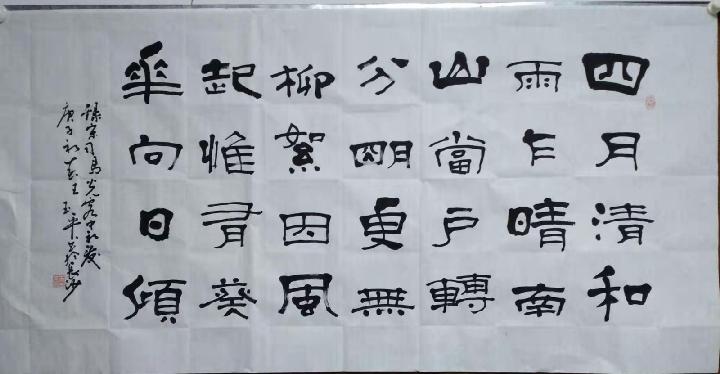 四月清和
雨乍晴南
山當戶轉
分朙更無
柳絮因風
起惟有葵
華向日傾
錄宋司馬光客中初夏
庚子初春王玉平